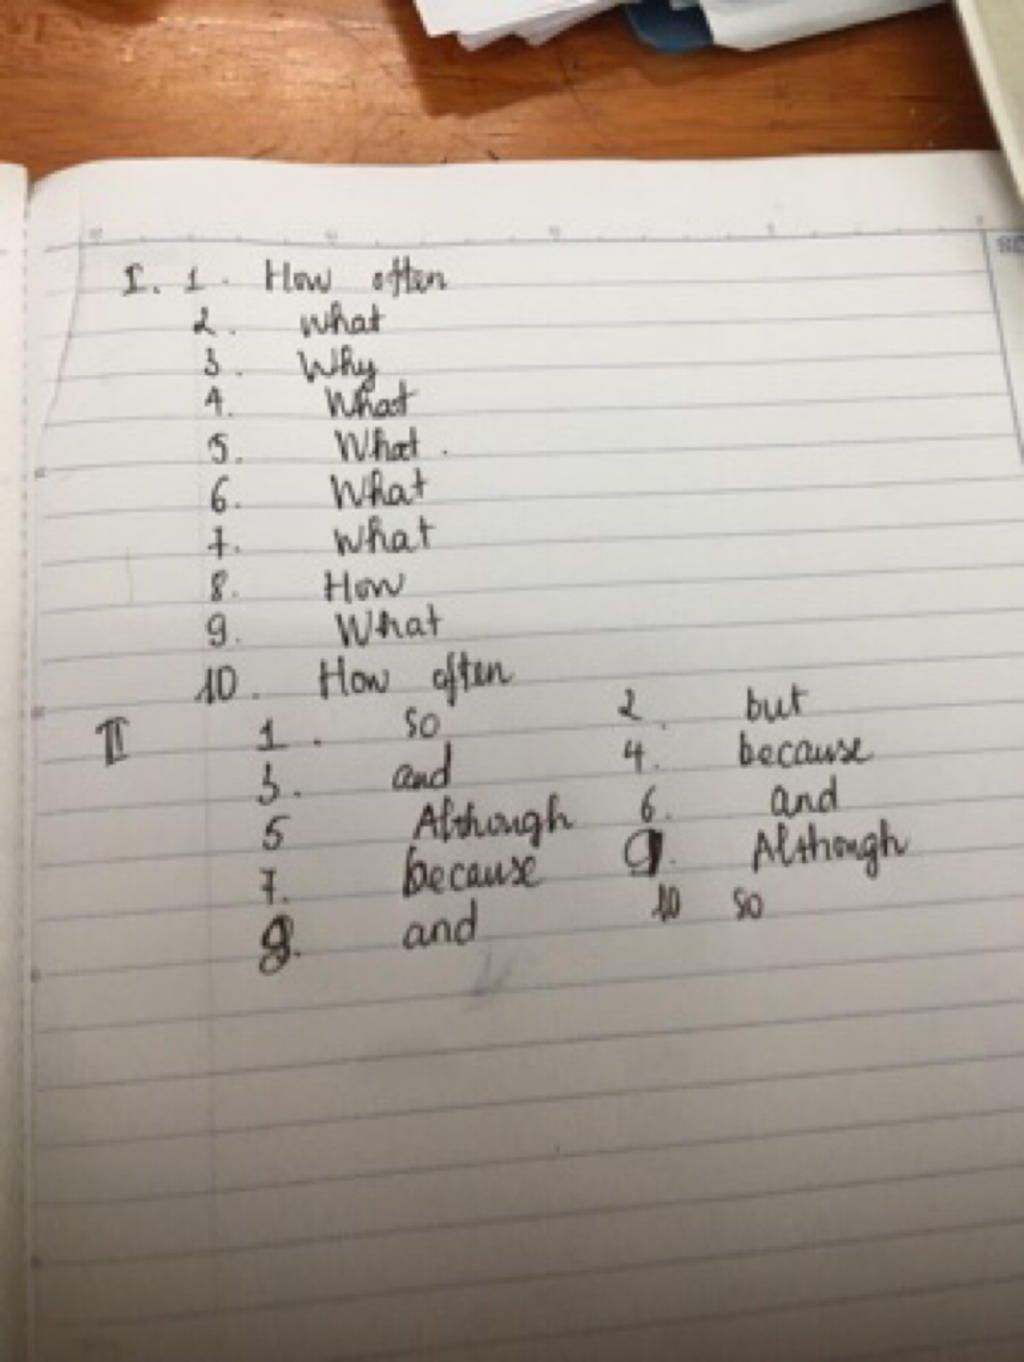 I. 1. How often
2. What
3. Why
4. What
5. What.
6. What
7. What
8. How
9. What
10. How often
II 1. so 2. but
3. and 4. because
5 Although 6. and
7. because 9. Although
8. and 10 so